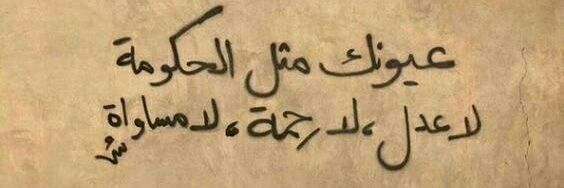 عيونك مثل الحكومة
لا عدل ،لا رحمة، لا مساواة